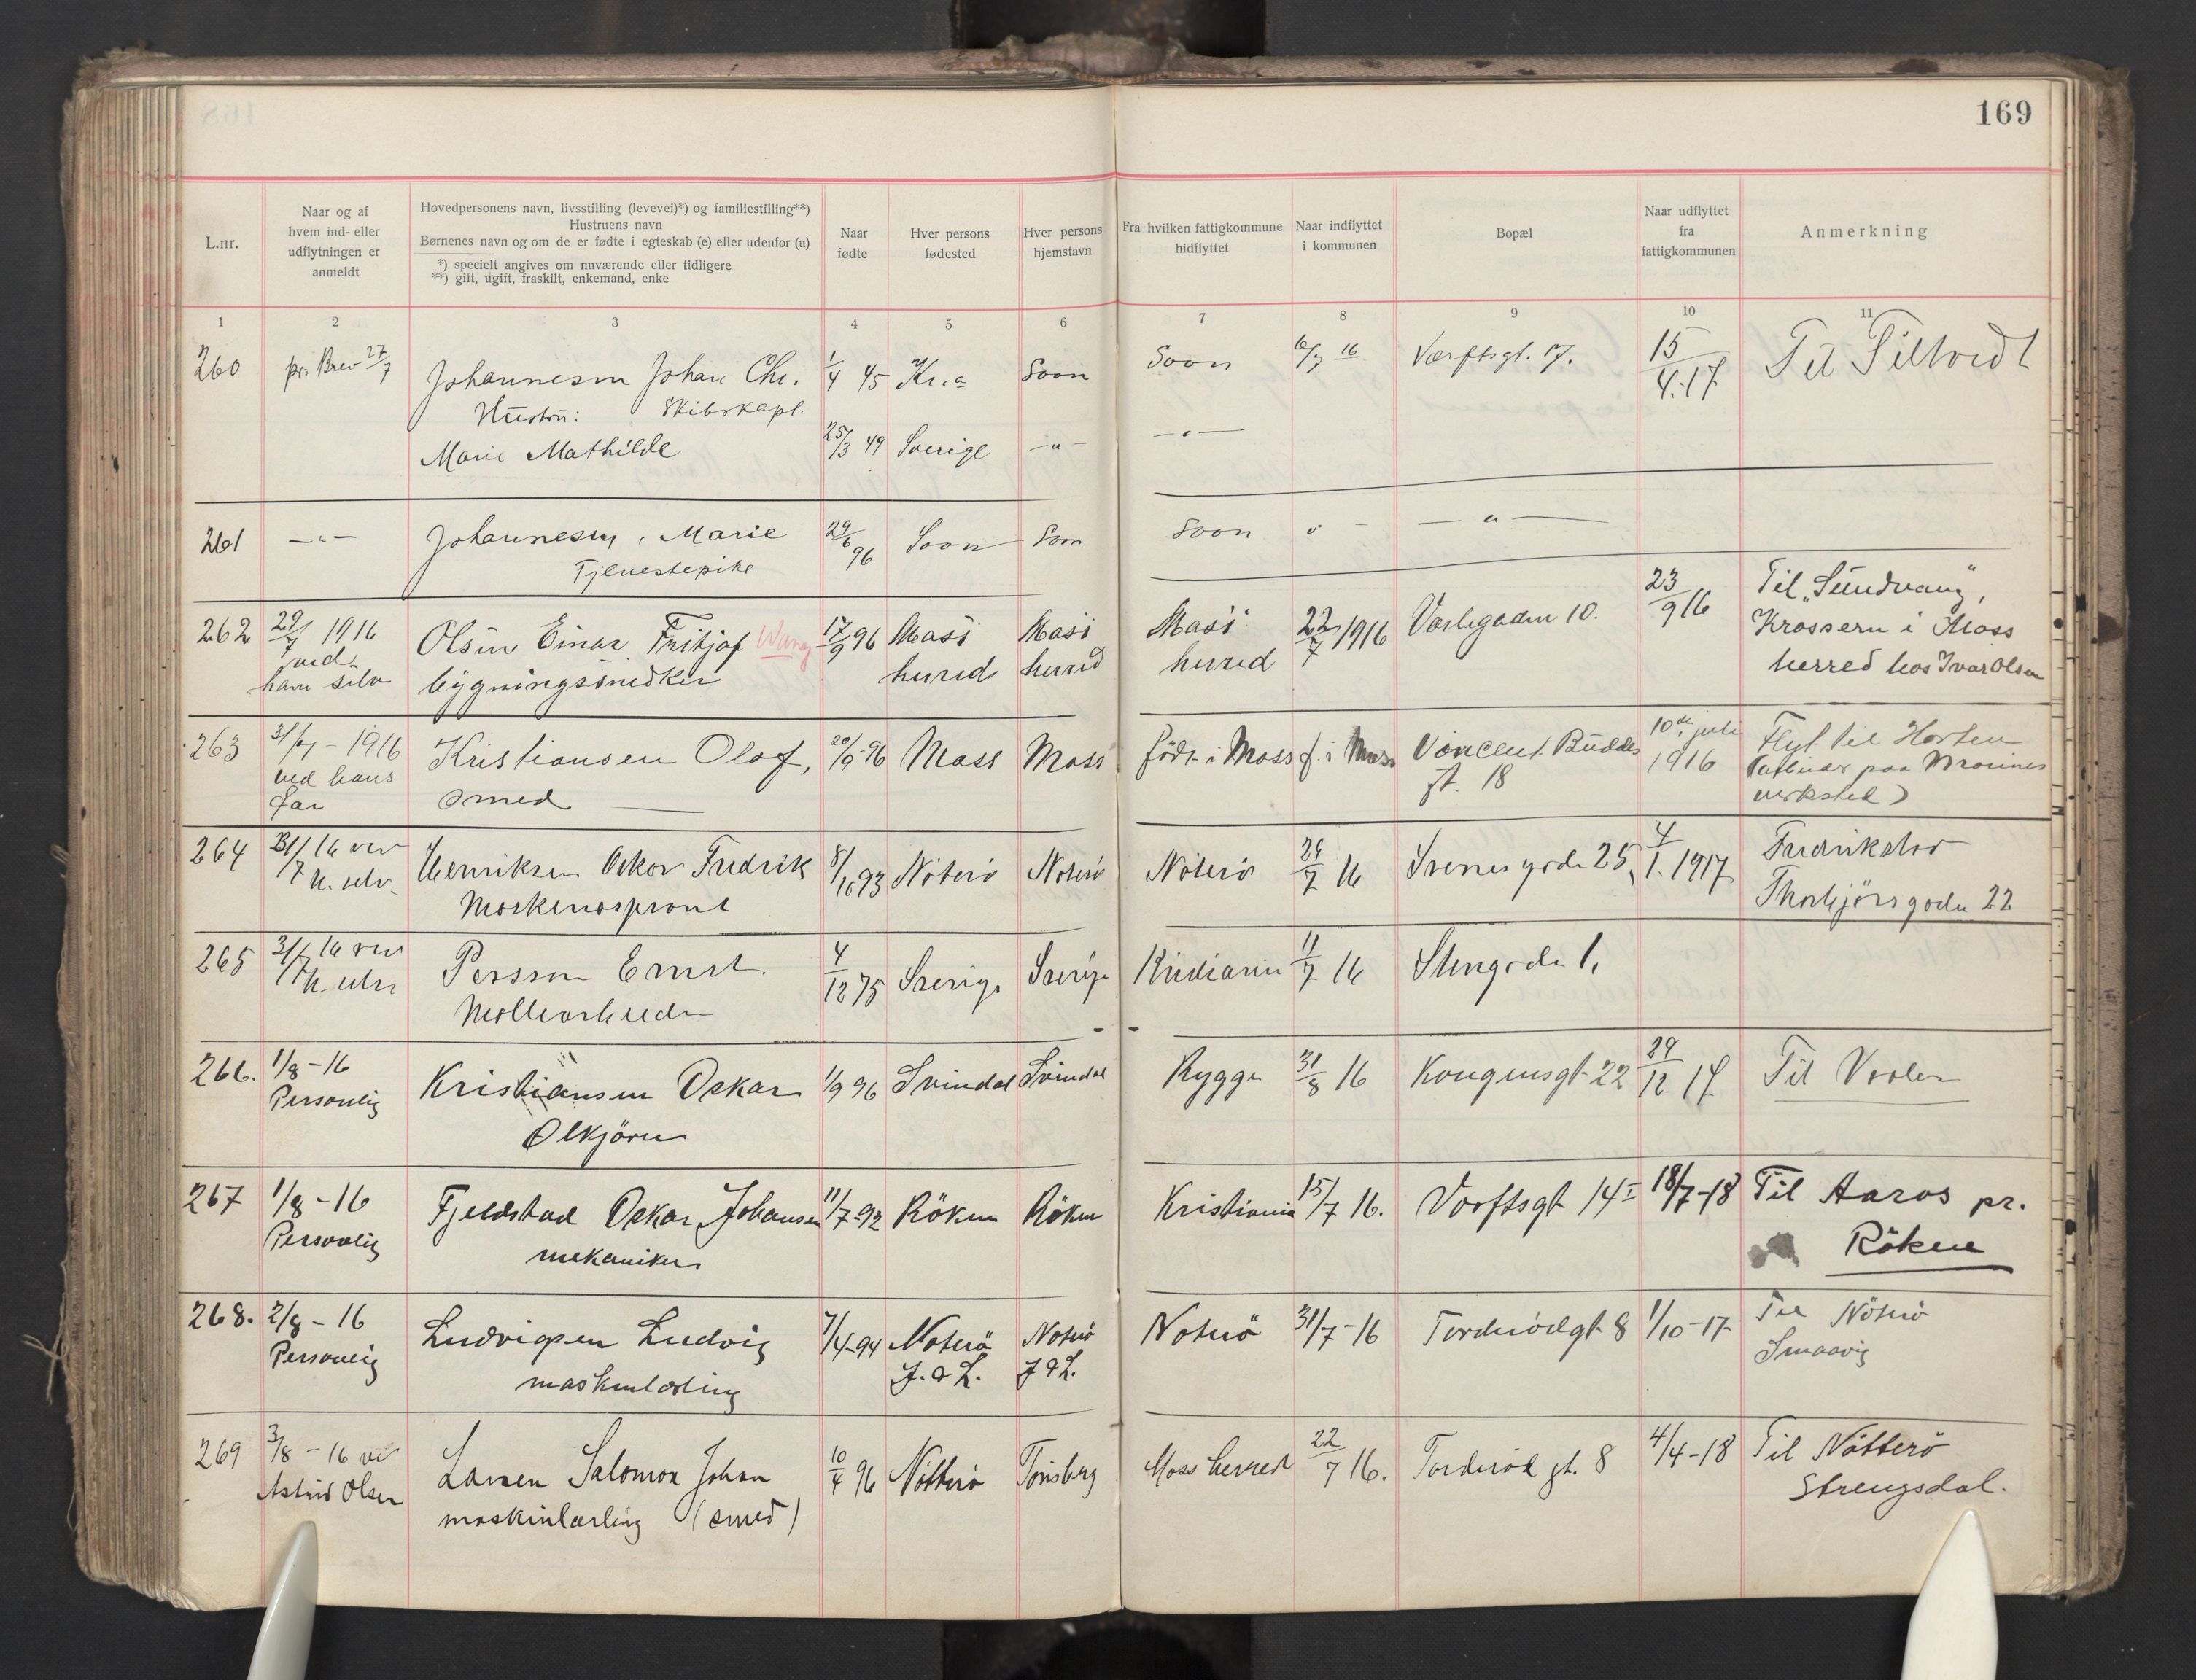 169
L.nr.
Naar og af
hvem ind- eller
udflytningen er
anmeldt
Hovedpersonens navn, livsstilling (levevei)*) og familiestilling**)
Hustruens navn
Børnenes navn og om de er fødte i egteskab (e) eller udenfor (u)
*) specielt angives om nuværende eller tidligere
**) gift, ugift, fraskilt, enkemand, enke
Naar
fødte
Hver persons
fødested
Hver persons
hjemstavn
Fra hvilken fattigkommune
hidflyttet
Naar indflyttet
i kommunen
Bopæl
Naar udflyttet
fra
fattigkommunen
Anmerkning
1 2 3 4 5 6 7 8 9 10 11
260 pr. Brev 27/7 Johannesen Johan Chr. 1/4 45 Kr.a Soon Soon 6/7 16 Værftsgt. 17. 15/4.17 Til
Hustru: Skibskapt.
Marie Mathilde 25/3 49 Sverige —"— —"—
261 —"— Johannesen, Marie 29/6 96 Soon Soon Soon " — —"—
Tjenestepike
262 29/7 1916 Olsen Einar Fritjof Wang 17/9 96 Moss Moss Moss 22/7 1916 Varlegaden 10. 23/9 16 Til "Sundvang",
ved bygningssnedker herred herred herred Krossern i Moss
ham selv herred hos Ivar Olsen
263 31/7 - 1916 Kristiansen Olaf, 20/9 - 96 Moss Moss født i Moss f. i Moss Vincent Buddes 10de juli Flyt til Horten
ved hans smed gt. 18 1916 (arbeider paa Marines
far verksted)
264 31/7 16 ved Henriksen Oskar Fredrik 8/10 93 Nöterö Nöterö Nöterö 29/7 16 Svenesgode 25, 4/1. 1917 Fredrikstad
h. selv Maskinaspirant Thorbjörsgoden 22
265 31/7 16 ved Persson Ernst. 4/12 75 Sverige Sverige Kristiania 11/7 16 Stengoden 1.
h. selv Møllearbeider
266. 1/8 - 16 Kristiansen Oskar 1/9 96 Svindal Svindal Rygge 31/8 16 Kongensgt 22 29/12 17 Til Vaaler
Personlig Ølkjører
267 1/8 - 16 Fjeldstad Oskar Johansen 11/7-92 Röken Röken Kristiania 15/7 16. Værftsgt 14 I 18/7-18 Til Aaros pr.
Personlig mekaniker Röken
268. 2/8 - 16 Ludvigsen Ludvig 7/4-94 Noterö Noterö Noterö 31/7-16 Torderödgt 8 1/10-17 Til Nöterö
Personlig maskinlærling J. & L. J & L. Smaavig
269 3/8 - 16 ved Larsen Salomon Johan 10/4 96 Nötterö Tönsberg Moss herred 22/7 16. Torderöd gt. 8 4/4-18 Til Nötterö
Astrid Olsen maskinlærling (smed) Strengsdal.